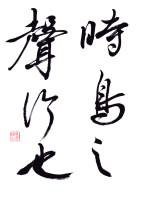 時鳥之
聲行也